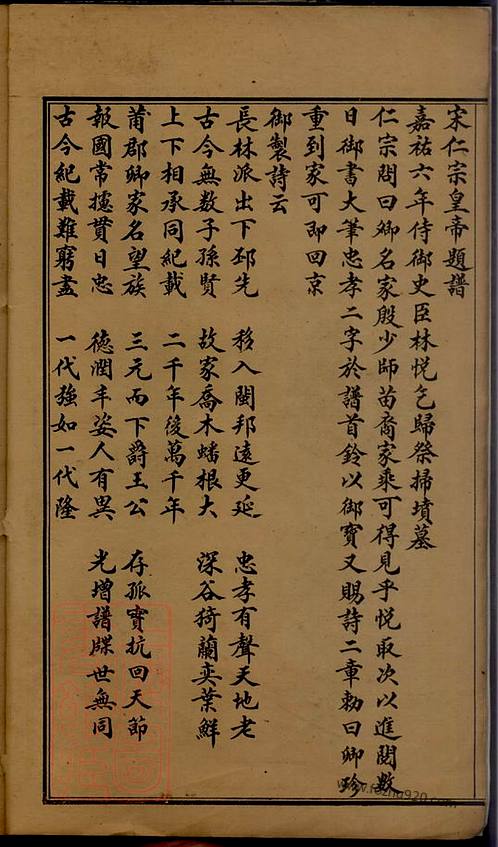 宋仁宗皇帝題譜
嘉祐六年侍御史臣林悅乞歸祭掃墳墓
仁宗問曰卿名家殷少師苗裔家乘可得見乎悅取次以進閱數
日御書大筆忠孝二字於譜首鈐以御寶又賜詩二章勅曰卿珍
重到家可即回京
御製詩云
長林派出下邳先 移入閩邦遠更延 忠孝有聲天地老
古今無數子孫賢 故家喬木蟠根大 深谷猗蘭奕葉鮮
上下相承同紀載 二千年後萬千年
莆郡卿家名望族 三元而下爵王公 存孤實抗回天節
報國常攄貫日忠 德潤丰姿人有異 光增譜牒世無同
古今紀載難窮盡 一代強如一代隆